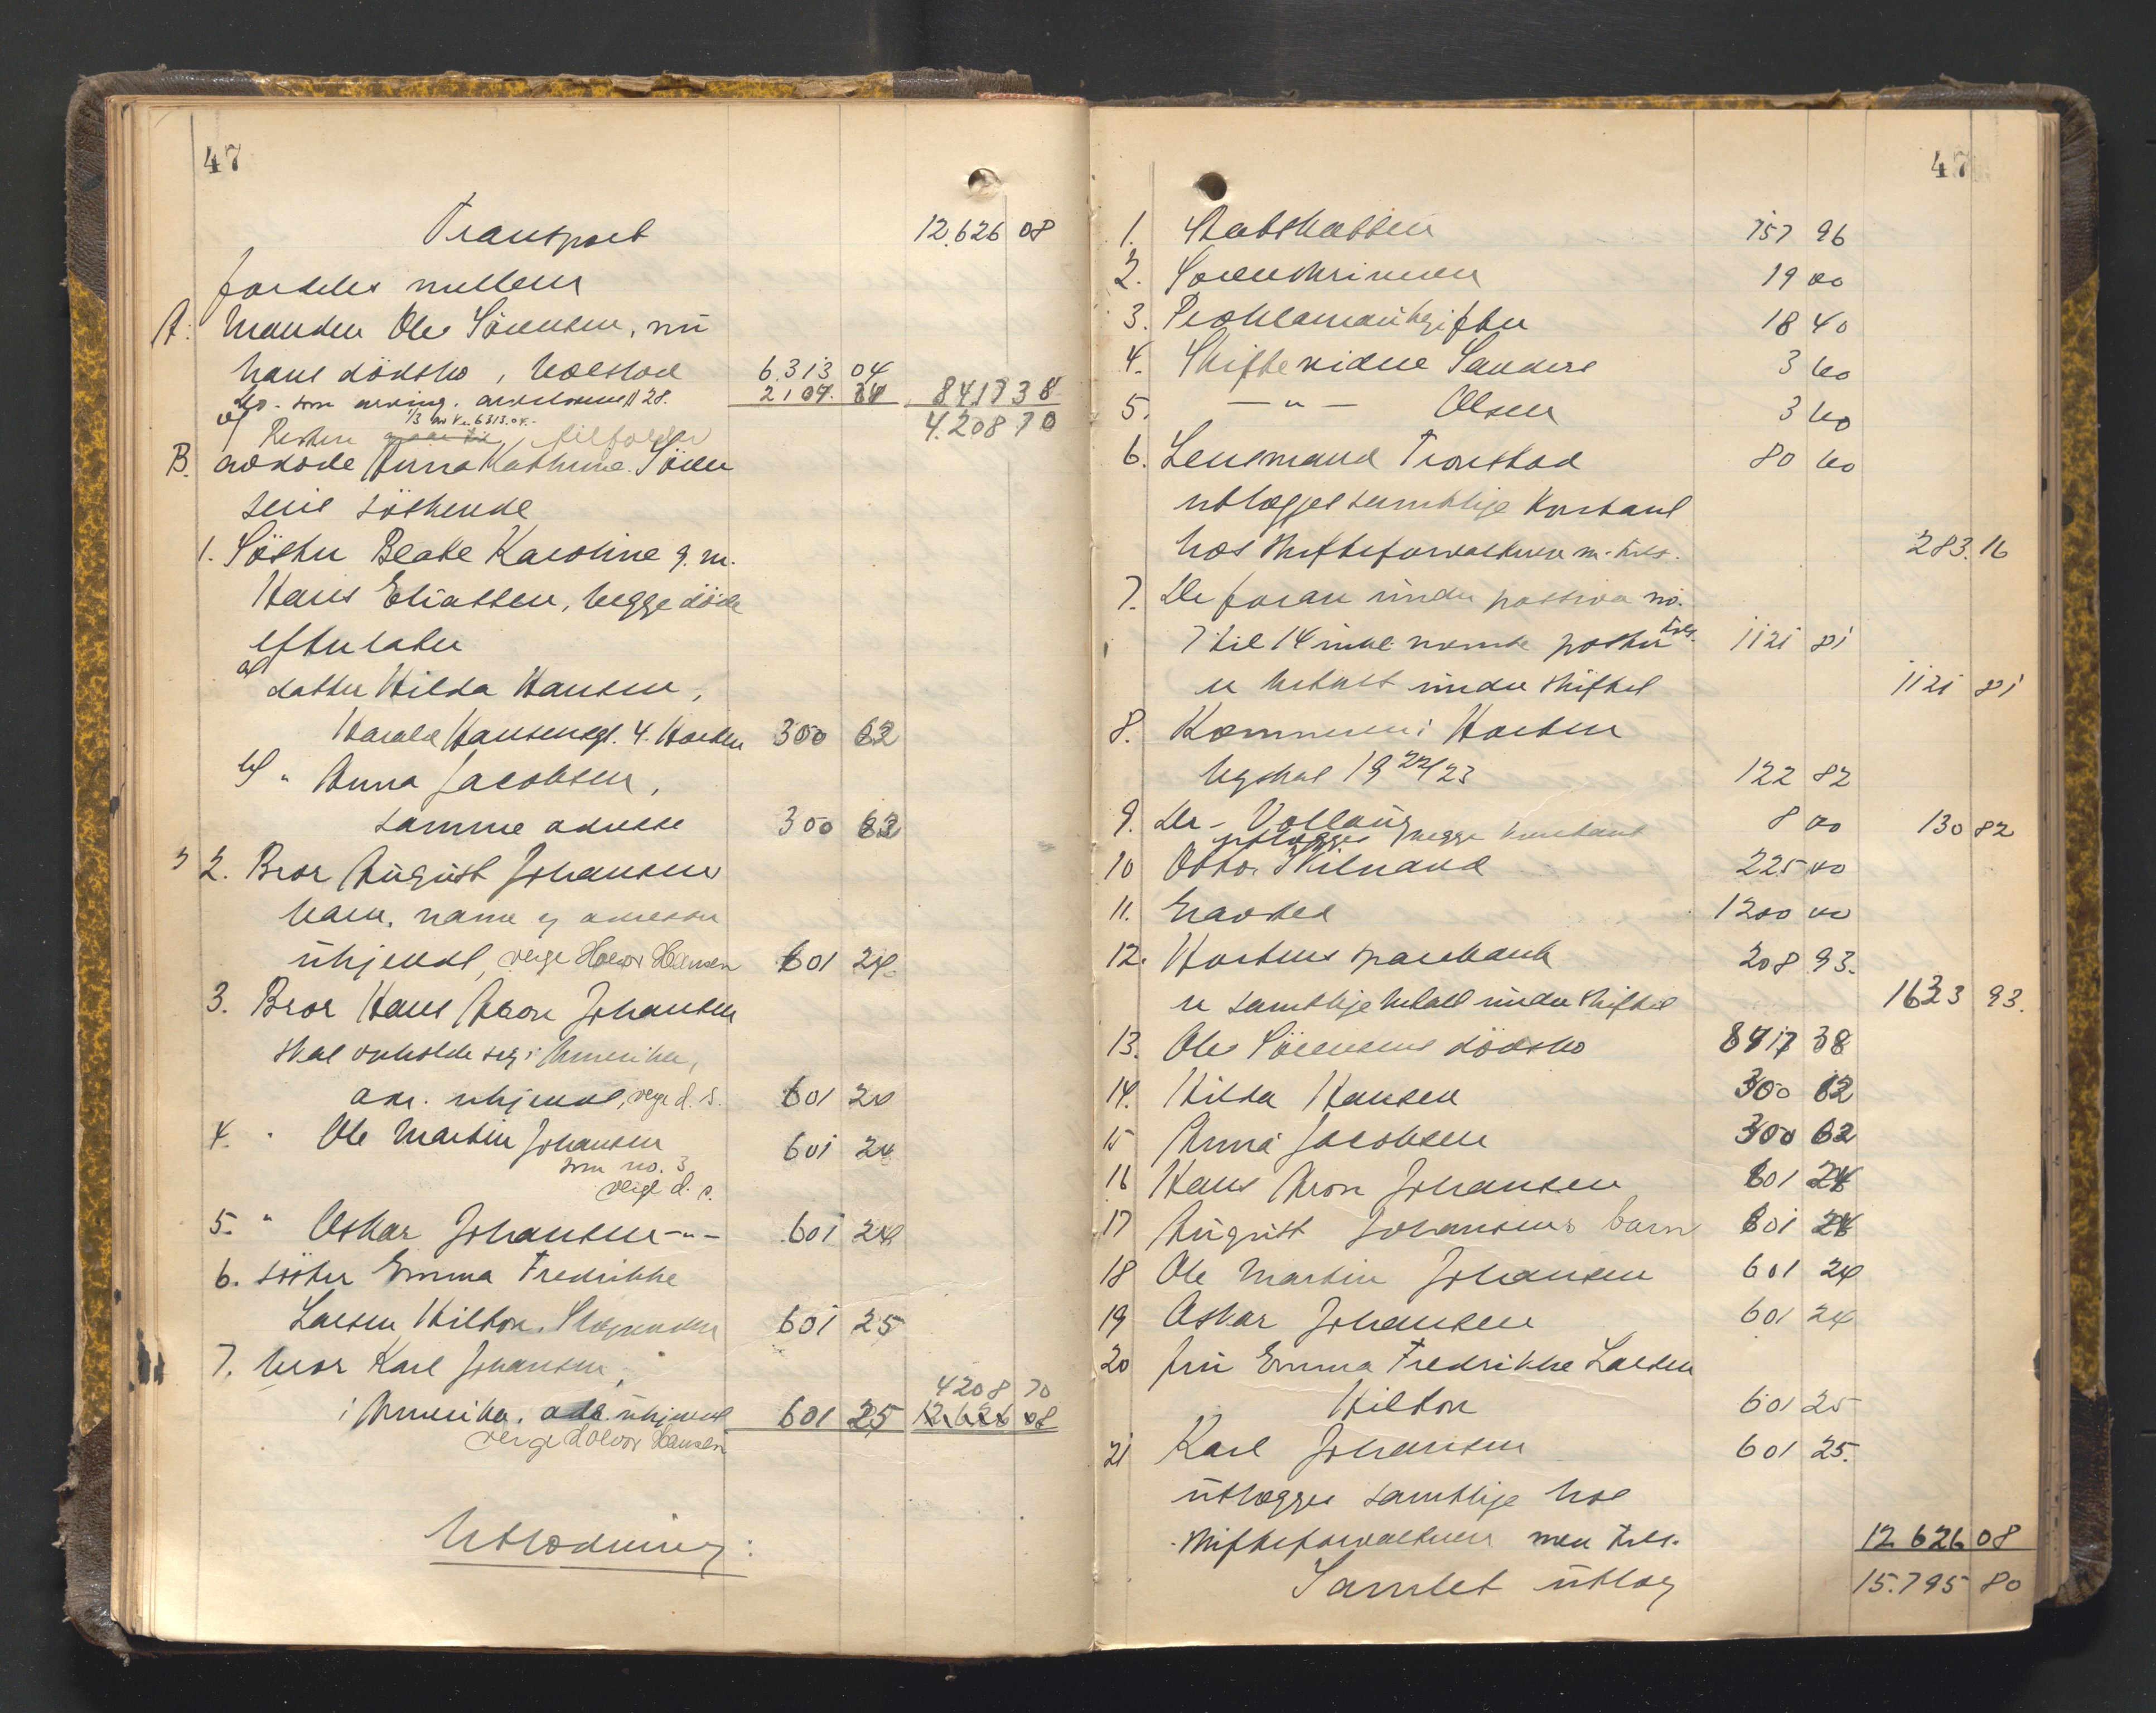 47
Transport 12.626 08
fordeles mellem
A: Manden Ole Sörensen, nu
hans dödsbo, boeslod 6.313 04
Do. som arving. arvelovens § 28. 2.104. 34 8417 38
1/3 av Kr. 6313.04.
Resten tilfalder 4.208 70
B. avdöde Anna Kathrine Sören
sens söskende
1. Söster Beate Karoline g. m.
Hans Eliassen, begge döde
efterlater
a) datter Hilda Hansen,
Harald Hansensgt. 4. Horten 300 62
b) " Anna Jacobsen,
samme adresse 300 62
2. Bror August Johansens
barn, navn og adresse
ubjendt, verge Halvor Hansen 601 24
3. Bror Hans Aron Johansen
skal opholde seg i Amerika,
adr. ubjendt, verge d. s. 601 24
4. " Ole Martin Johansen 601 24
som no. 3
verge d. s.
5. " Oskar Johansen -"- 601 24
6. söster Emma Fredrikke
Larsen Hilton, 601 25
7. bror Karl Johansen, 4208 70
i Amerika, adr. ubjendt 601 25 12.626 08
verge Halvor Hansen
Utlodning:
47
1. Statskassen 157 96
2. Sorenskriveren 19 00
3. Proklamautgifter 18 40
4. Skiftevidne Sanders 3 60
5. -"- Olsen 3 60
6. Lensmand Tronstad 80 60
utlægges samtlige kontant
hos skifteforvalteren m. tils. 283.16
7. De foran under passiva no.
7 til 14 inkl. nevnte poster tils. 1121 81
er betalt under skiftet 1121 81
8. Kæmneren i Horten
byskat 1922/23 122 82
9. Dr. Vollaug 8 00 130 82
utlægges begge kontant
10 Otto Skilnand 225 00
11. Gravsted 1200 00
12. Hortens sparebank 208 93.
er samtlige betalt under skiftet 1633 93.
13. Ole Sörensens dödsbo 8417 38
14. Hilda Hansen 300 62
15 Anna Jacobsen 300 62
16 Hans Aron Johansen 601 24
17 August Johansens barn 601 24
18 Ole Martin Johansen 601 24
19 Oskar Johansen 601 24
20 fru Emma Fredrikke Larsen
Hilton 601 25
21 Karl Johansen 601 25.
utlægges samtlige hos
skifteforvalteren med tils. 12 626 08
Samlet utlæg 15.795 80